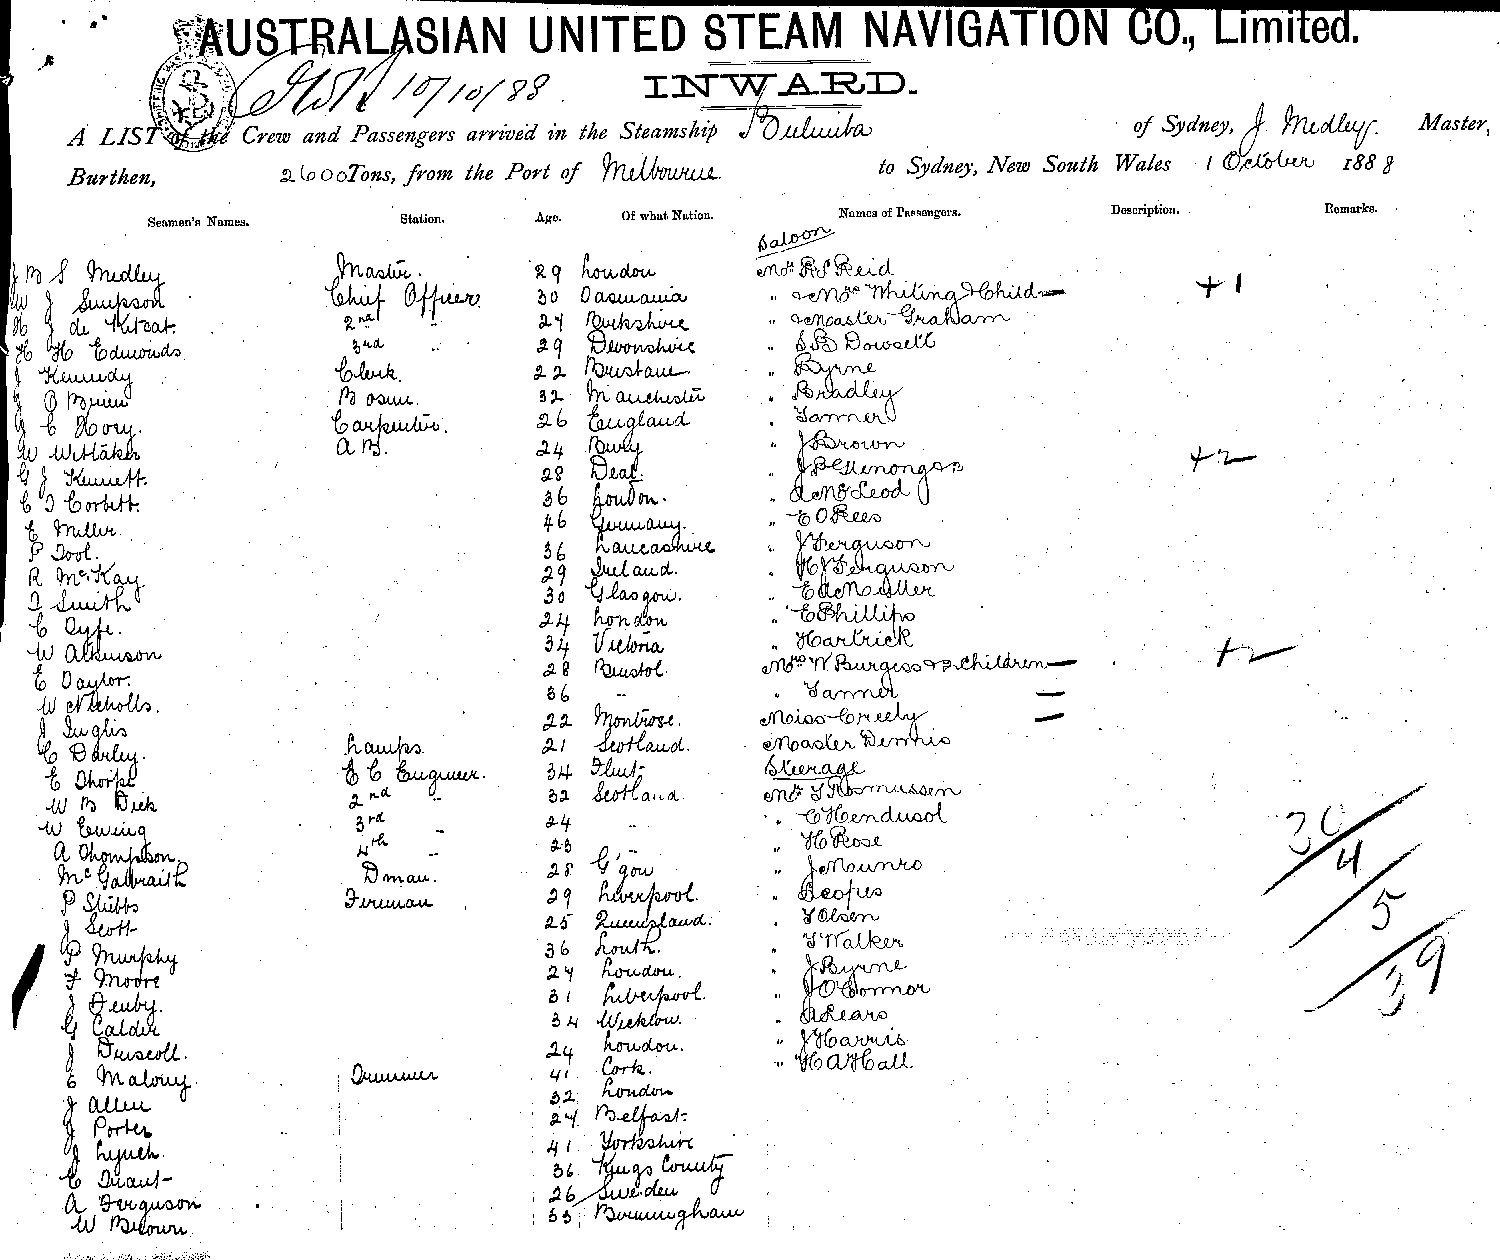 AUSTRALASIAN UNITED STEAM NAVIGATION CO., Limited.
10/10/88
INWARD.
A LIST of the Crew and Passengers arrived in the Steamship of Sydney, J. Medley Master,
Burthen, 2600 Tons, from the Port of Melbourne to Sydney, New South Wales 1 October 1888
Seamen's Names. Station. Age. Of what Nation. Names of Passengers. Description. Remarks.
Saloon
J M S Medley Master. 29 London Mr R S Reid
W J Simpson Chief Officer 30 Tasmania " & Mrs Whiting & Child — +1
H J de Kitcat. 2nd " 24 Berkshire " & Master Graham
H H Edmonds 3rd " 29 Devonshire " S B Dowsett
J Kennedy Clerk. 22 Brisbane " Byrne
J O Brien Bosun. 32 Manchester " Bradley
J C Hory. Carpenter. 26 England " Tanner
W Wittaker A B. 24 Bury " J Brown
G J Kennett. 28 Deal. " J P +2
C T Corbett. 36 London. " A McLeod
C Miller 46 Germany. " E O Rees
P Tool. 36 Lancashire " J Ferguson
R McKay 29 Ireland. " H J Ferguson
T Smith 30 Glasgow. " E A Miller
C Fyfe. 24 London " E Phillips
W Atkinson 34 Victoria " Hartrick
E Taylor. 28 Bristol Mrs W Burgess & 2 Children — +2
W Nicholls. 36 " " Tanner —
J Inglis 22 Montrose. Miss Creely —
C Darley. Lamps 21 Scotland. Master Dennis
E Thorpe E C Engineer. 34 Flint Steerage
W B Dick 2nd " 32 Scotland Mr T Rasmussen
W Ewing 3rd " 24 " " C Hendusol 30
A Thompson 4th " 23 " " H Rose 4
McGalbraith Dman. 28 G'gow " J Munro
P Stubbs Fireman 29 Liverpool. " Scopes 5
J Scott 25 Queensland. " T Olsen
P Murphy 36 Louth. " T Walker 39
F Moore 24 London. " J Byrne
J Fenby. 31 Liverpool. " J O'Connor
G Calder 34 Wicklow. " A Lears
J Driscoll. 24 London. " J Harris
E Malony. Trimmer 41 Cork. " H A Hall
J Allen 32 London
J Porter 24 Belfast
J Lynch. 41 Yorkshire
C Truant 36 Kings County
A Ferguson 26 Sweden
W Brown 33 Birmingham